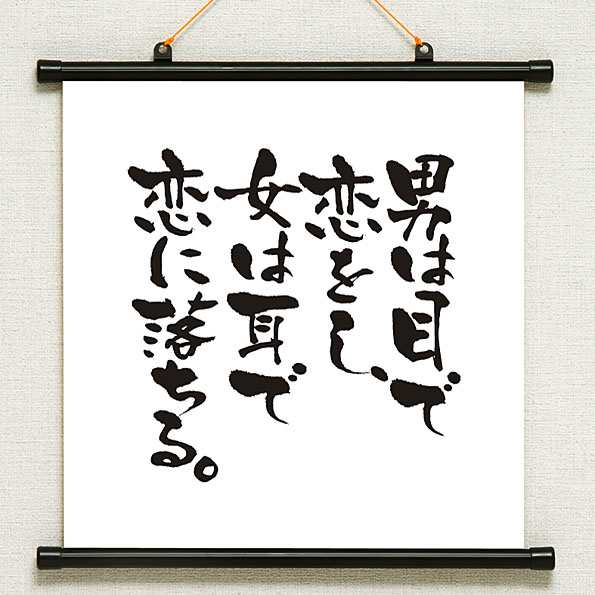 男は目で
恋をし、
女は耳で
恋に落ちる。